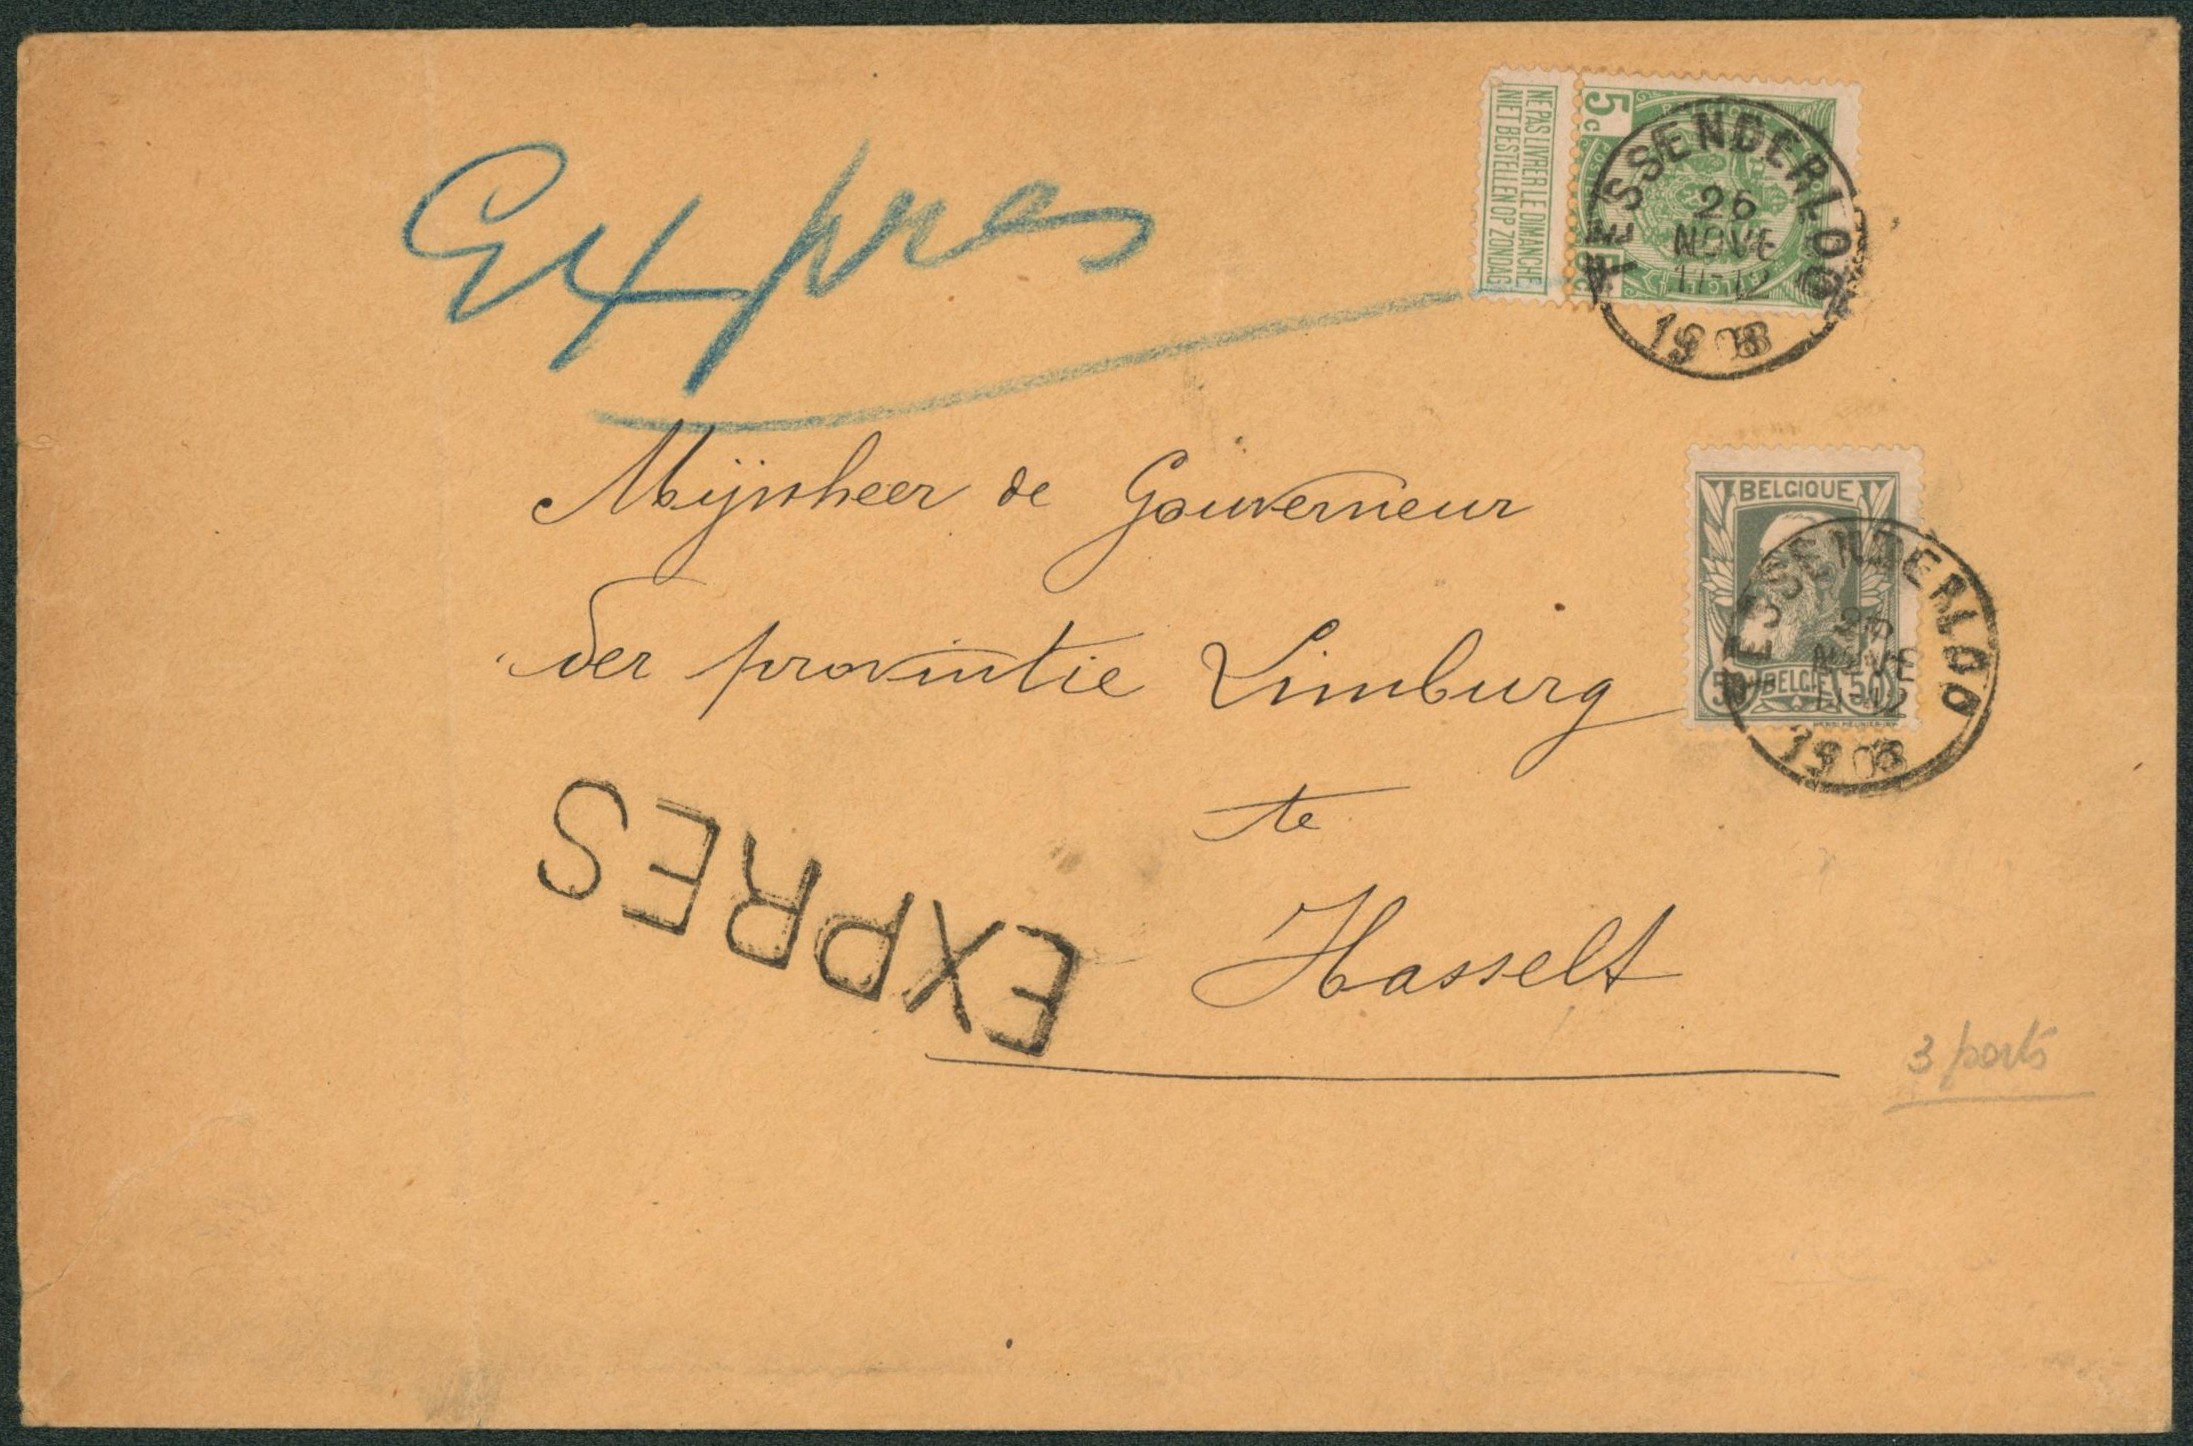 Expres
NE PAS LIVRER LE DIMANCHE
NIET BESTELLEN OP ZONDAG
5c
TESSENDERLOO
26
NOVE
11-12
1908
Mijnheer de Gouverneur
der provintie Limburg
te
Hasselt
BELGIQUE
BELGIË
50
TESSENDERLOO
26
NOVE
11-12
1908
EXPRES
3 ports